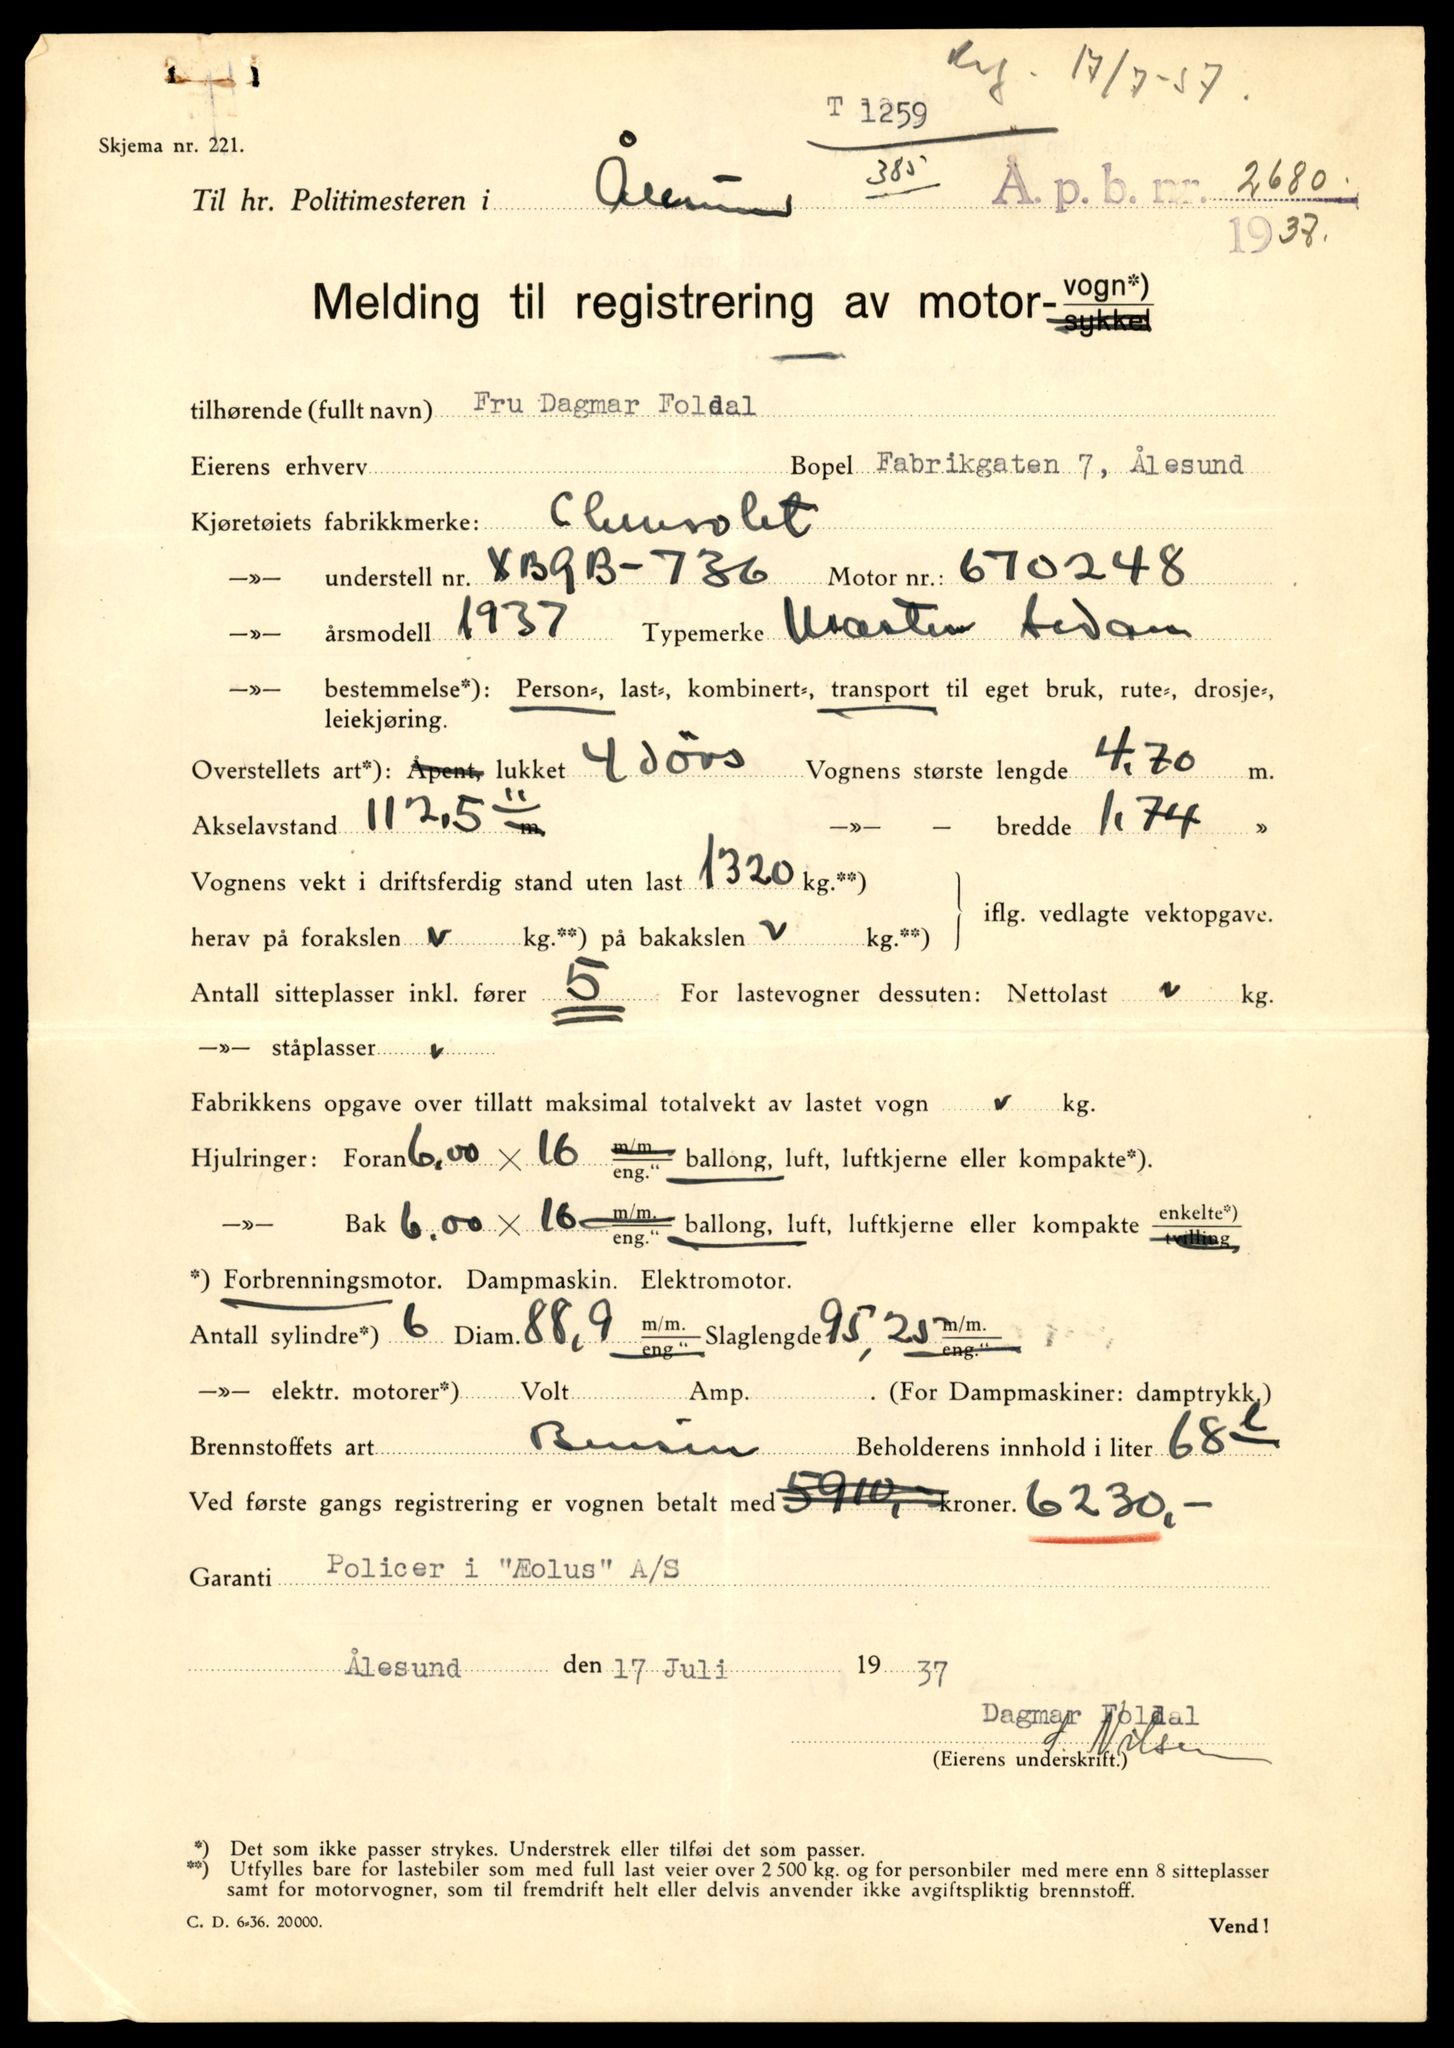 Reg. 17/7-37.
T 1259
Skjema nr. 221.
385
Til hr. Politimesteren i Ålesund
Å. p. b. nr. 2680.
1937.
Melding til registrering av motor-vogn*)
sykkel
tilhørende (fullt navn) Fru Dagmar Foldal
Eierens erhverv Bopel Fabrikgaten 7, Ålesund
Kjøretøiets fabrikkmerke: Chevrolet
—»— understell nr. XBGB-736 Motor nr.: 670248
—»— årsmodell 1937 Typemerke Master Sedan
—»— bestemmelse*): Person-, last-, kombinert-, transport til eget bruk, rute-, drosje-,
leiekjøring.
Overstellets art*): Åpent, lukket 4 dörs Vognens største lengde 4.70 m.
Akselavstand 112,5" m —»— — bredde 1,74 »
Vognens vekt i driftsferdig stand uten last 1320 kg.**)
iflg. vedlagte vektopgave.
herav på forakslen v kg.**) på bakakslen v kg.**)
Antall sitteplasser inkl. fører 5 For lastevogner dessuten: Nettolast v kg.
—»— ståplasser v
Fabrikkens opgave over tillatt maksimal totalvekt av lastet vogn v kg.
Hjulringer: Foran 6.00 × 16 m/m. eng.“ ballong, luft, luftkjerne eller kompakte*).
—»— Bak 6.00 × 16 m/m. eng.“ ballong, luft, luftkjerne eller kompakte enkelte*) tvilling
*) Forbrenningsmotor. Dampmaskin. Elektromotor.
Antall sylindre*) 6 Diam. 88,9 m/m. eng.“ Slaglengde 95,25 m/m. eng.“
—»— elektr. motorer*) Volt Amp. . (For Dampmaskiner: damptrykk.)
Brennstoffets art Bensin Beholderens innhold i liter 68 l
Ved første gangs registrering er vognen betalt med 5910,- kroner. 6230,-
Garanti Policer i "Æolus" A/S
Ålesund den 17 Juli 19 37
Dagmar Foldal
Nilsen
(Eierens underskrift.)
*) Det som ikke passer strykes. Understrek eller tilføi det som passer.
**) Utfylles bare for lastebiler som med full last veier over 2 500 kg. og for personbiler med mere enn 8 sitteplasser
samt for motorvogner, som til fremdrift helt eller delvis anvender ikke avgiftspliktig brennstoff.
C. D. 6-36. 20000.
Vend!